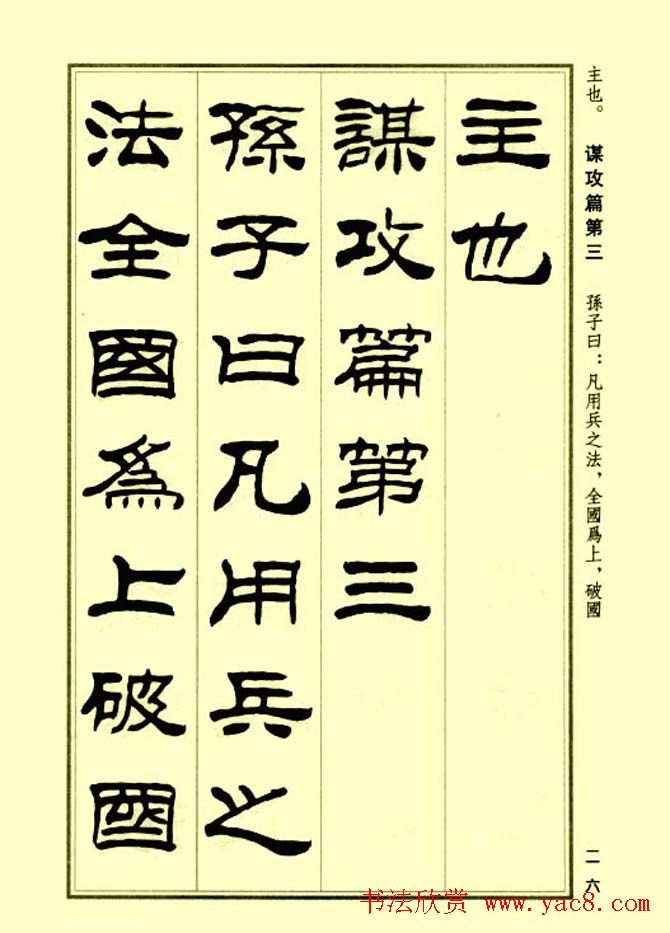 主也
謀攻篇第三
孫子曰凡用兵之
法全國為上破國
主也。 谋攻篇第三 孫子曰：凡用兵之法，全國爲上，破國
二六
书法欣赏 www.yac8.com